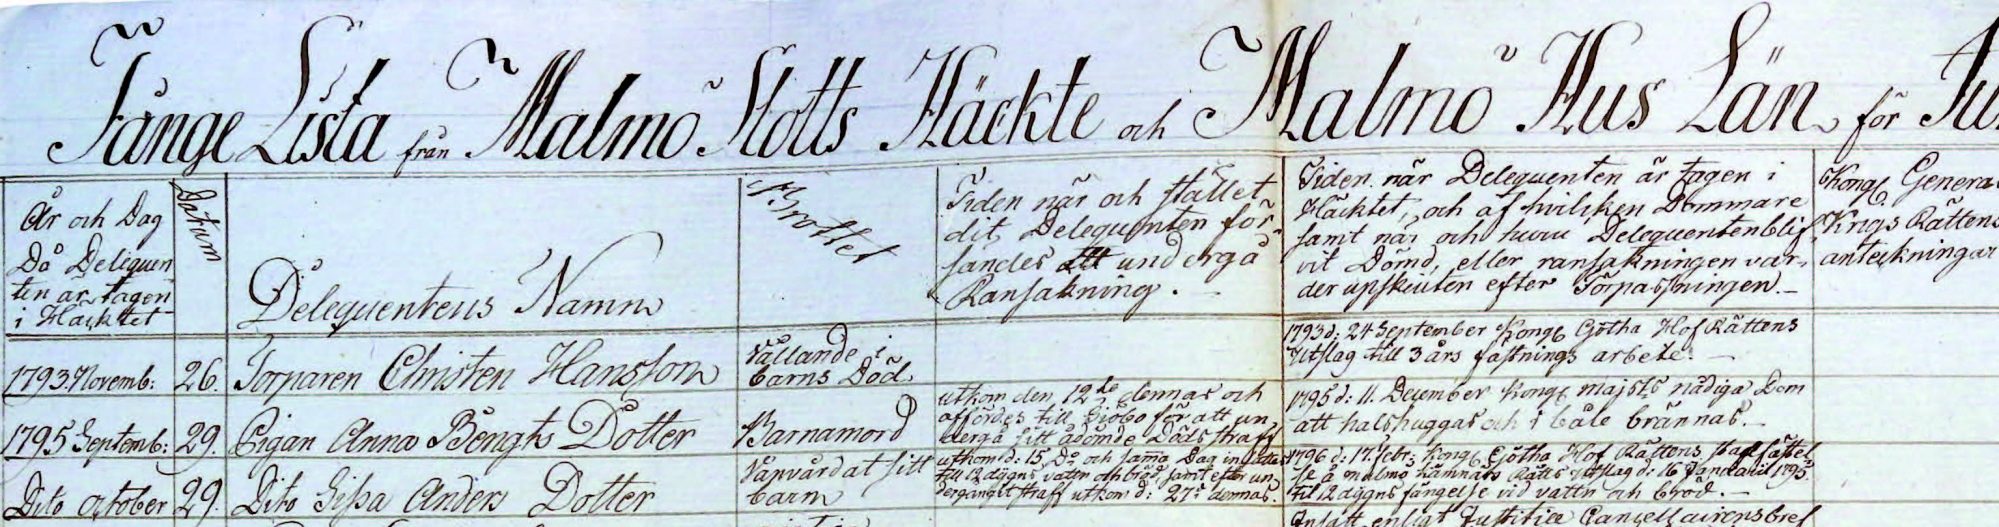 Fånge Lista från Malmö Slotts Häckte och Malmö Hus Län för
År och Dag
Då Deliquen
ten är tagen
i Häcktet
Datum
Delequentens Namn
Brottet
Tiden när och stället
dit Delequenten för
sandes att undergå
Ransakning.
Tiden när Delequenten är tagen i
Häcktet, och af hvilken Dommare
samt när och huru Delequenten blif
vit Dömd, eller ransakningen var
der upskuten efter Förpassningen.
Kongl General
Krigs Rättens
anteckningar
1793. Novemb: 26. Torparen Christen Hansson
Vållande i
barns Död.
1793 d: 24 September Kongl Götha Hof Rättens
Utslag till 3 års fästnings arbete.
1795 Septemb: 29. Pigan Anna Bengts Dotter
Barnamord
utkom den 12te dennas och
affördes till Siöbo för att un
dergå sitt ådömde Dödsstraff
1795 d: 11. December Kongl Majsts nådiga Dom
att halshuggas och i båle brännas.
Dito October 29. Dito Sissa Anders Dotter
Vanvårdat sitt
barn
utkom d: 15 Do och sama Dag
till 12 dygns vatten och bröd samt efter un
dergångit straff utkom d: 27de dennas.
1796 d: 17 Febr: Kongl Götha Hof Rättens
se å Malmö Kämnärs Rätts Utslag d: 16 Januarii 1795.
till 12 dygns fängelse vid vatten och bröd.
Insatt enligt Justitiæ Cancellairens bref